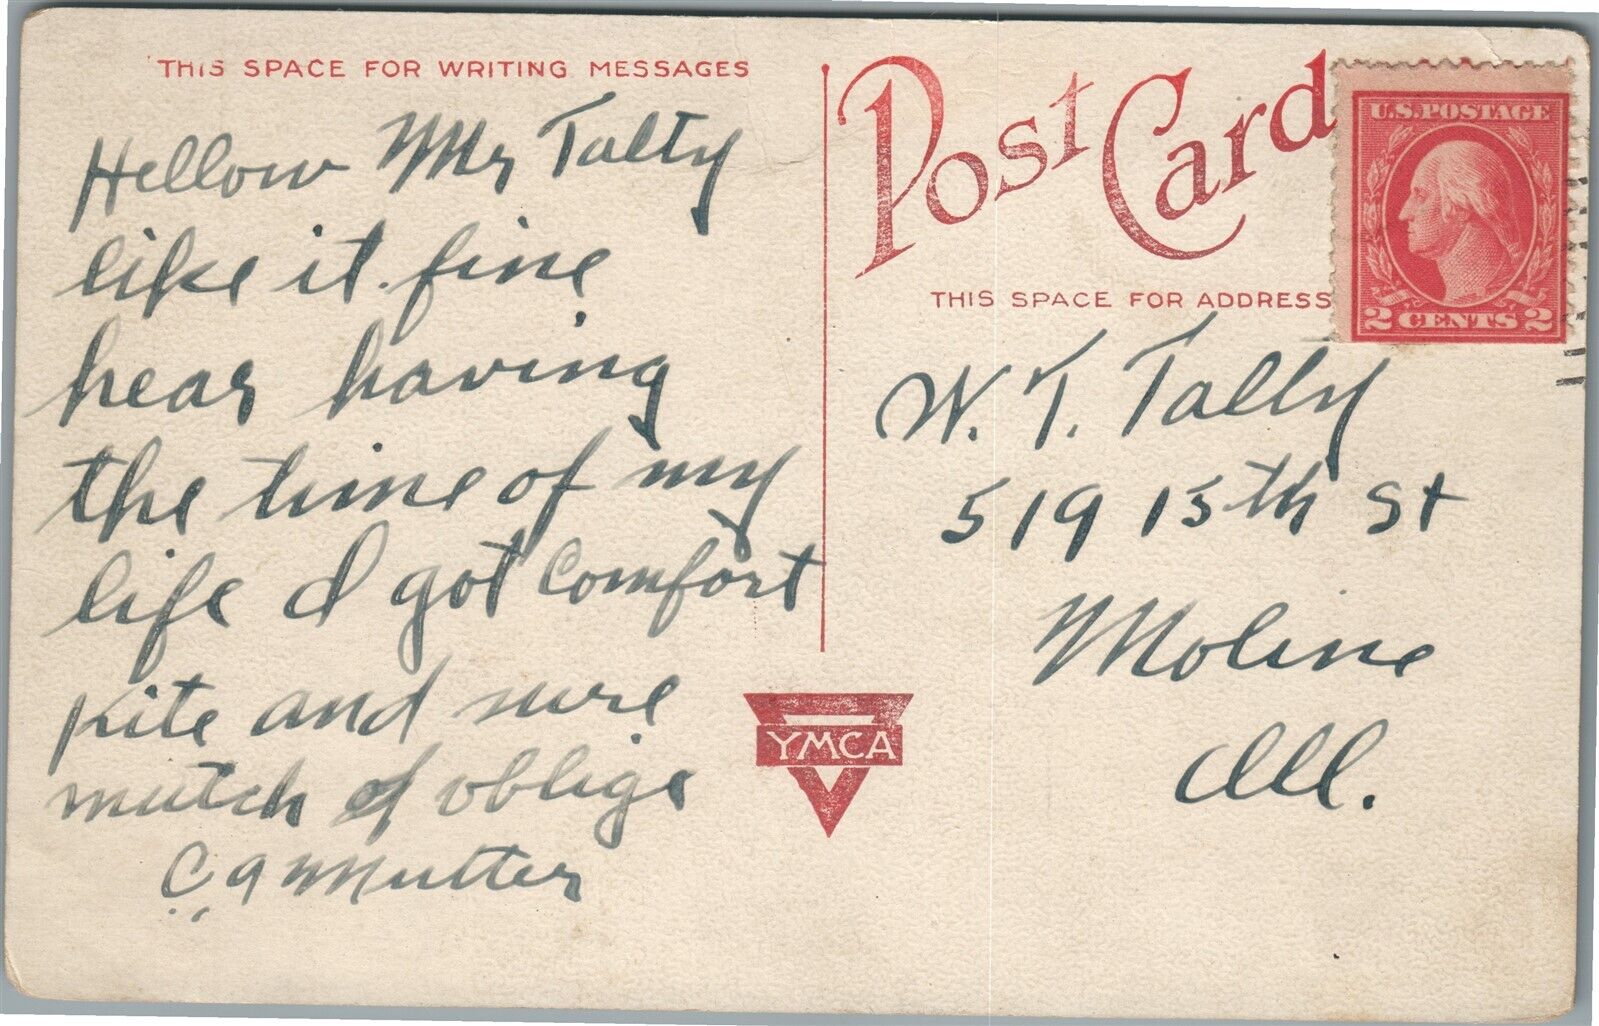 THIS SPACE FOR WRITING MESSAGES
Hellow Mr Talty
like it fine
hear having
the time of my
life I got comfort
kite and sure
mutch of oblige
C A Mutter
Post Card
THIS SPACE FOR ADDRESS
U.S. POSTAGE
2 CENTS 2
W. T. Tally
519 15th St
Moline
Ill.
YMCA